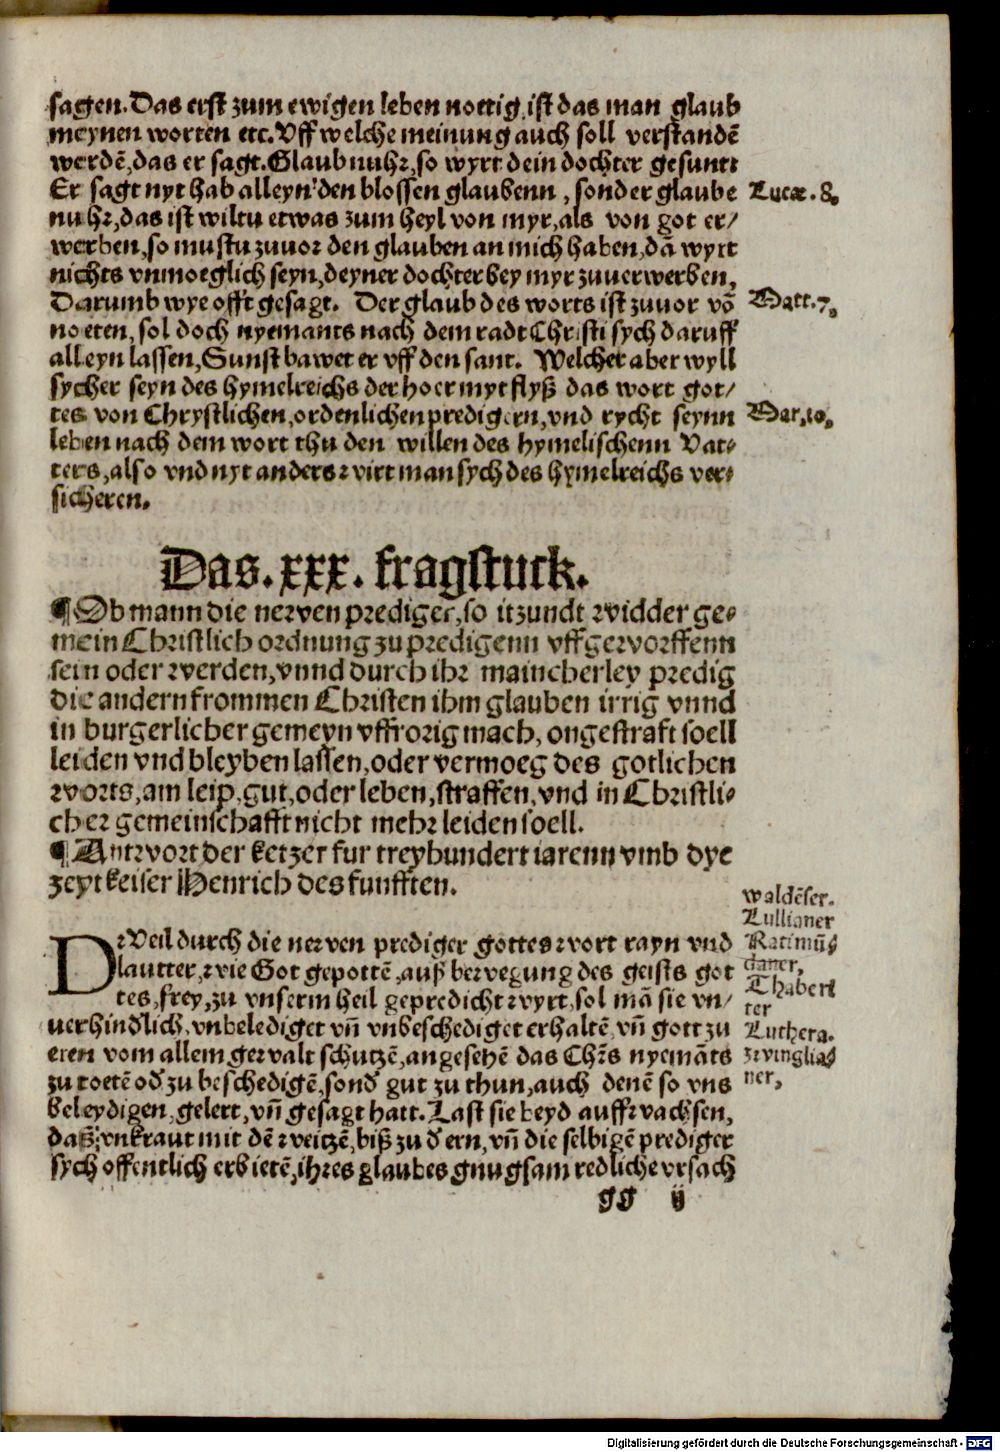 sagen. Das erst zum ewigen leben noettig ist das man glaub
meynen worten etc. Uff welche meinung auch soll verstandẽ
werdẽ, das er sagt. Glaub nuhr, so wyrt dein dochter gesunt:
Er sagt nyt hab alleyn den blossen glaubenn, sonder glaube
nuhr, das ist wiltu etwas zum heyl von myr, als von got er/
werben, so mustu zuvor den glauben an mich haben, dã wyrt
nichts vnmoeglich seyn, deyner dochter bey myr zuuerwerben,
Darumb wye offt gesagt. Der glaub des worts ist zuvor võ
noeten, sol doch nyemants nach dem radt Christi sych daruff
alleyn lassen, Sunst bawet er vff den sant. Welcher aber wyll
sycher seyn des hymelreichs der hoer myt flyß das wort got/
tes von Chrystlichen, ordenlichen predigern, vnd rycht seynn
leben nach dem wort thu den willen des hymelischenn Vat-
ters, also vnd nyt anders wirt man sych des hymelreichs ver-
sicheren.
Lucæ. 8.
Matt. 7.
Mar. 10.
Das. xxx. fragstuck.
¶ Ob mann die newen prediger, so itzundt widder ge-
mein Christlich ordnung zu predigenn vffgeworffenn
sein oder werden, vnnd durch ihr maincherley predig
die andern frommen Christen ihm glauben irrig vnnd
in burgerlicher gemeyn vffrorig mach, ongestraft soell
leiden vnd bleyben lassen, oder vermoeg des gotlichen
worts, am leip, gut, oder leben, straffen, vnd in Christli-
cher gemeinschafft nicht mehr leiden soell.
¶ Antwort der ketzer fur treyhundert iarenn vmb dye
zeyt keiser Henrich des funfften.
DWeil durch die newen prediger gottes wort rayn vnd
lautter, wie Got gepottẽ, auß bewegung des geists got
tes, frey, zu vnserm heil gepredicht wyrt, sol mã sie vn/
uerhindlich, vnbelediget vñ vnbeschediget erhaltẽ, vñ gott zu
eren vom allem gewalt schutzẽ, angesehẽ das Chr̃s nyemãts
zu toetẽ oď zu beschedigẽ, sonď gut zu thun, auch denẽ so vns
beleydigen, gelert, vñ gesagt hatt. Last sie beyd auffwachsen,
daß vnkraut mit dẽ weitzẽ, biß zu ď ern, vñ die selbigẽ prediger
sych offentlich erbietẽ, ihres glaubes gnugsam redliche vrsach
waldẽser.
Lullianer
Ratimũ-
daner,
Thaberi
ter
Luthera.
zwinglia-
ner,
gg ij
Digitalisierung gefördert durch die Deutsche Forschungsgemeinschaft - DFG